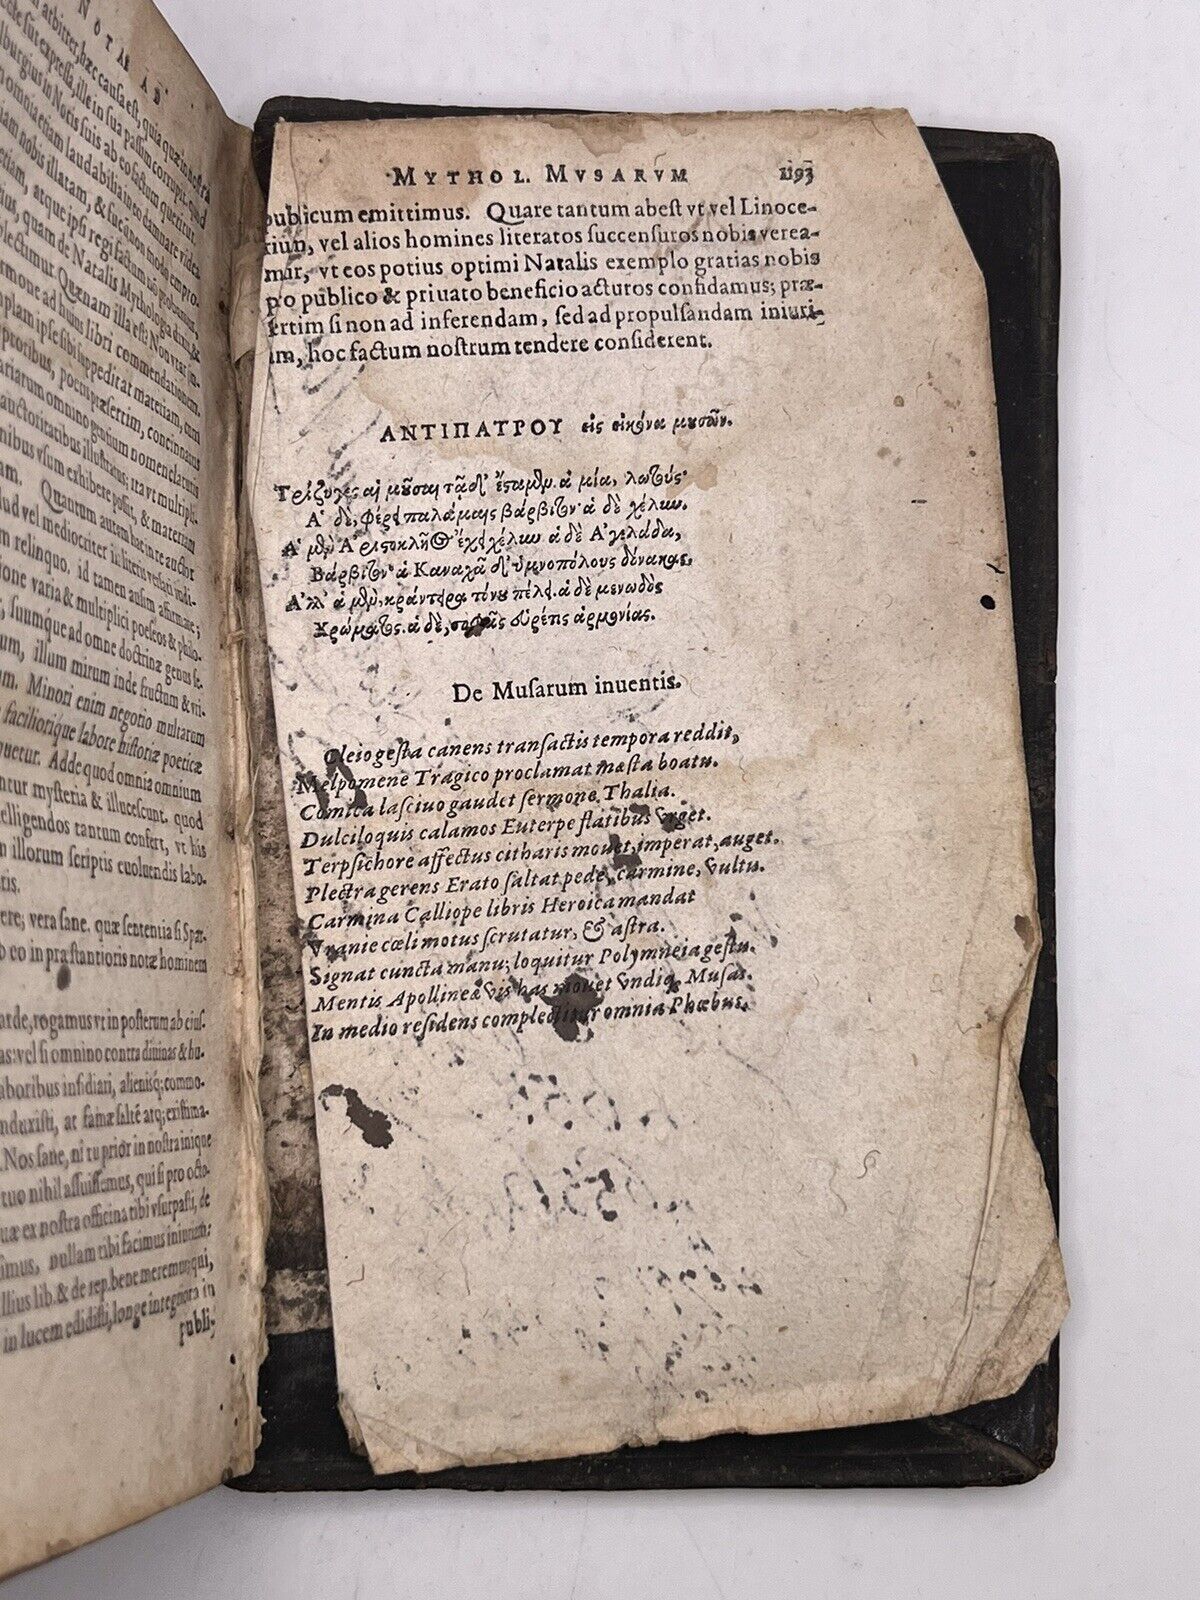 NOTAE AD
arbitrer, hæc causa est, quia quæ in nostra
sūt expressa, ille in sua passim corrupit. quod
burgius in Notis suis ab eo factum queritur.
omnia etiam laudabilia in eo damnare videa
nobis illatam, & suc non modo empro-
etiam, atque ipsi regi factum uti probamus,
quam de Natalis Mythologia dixi, &
plectimur Quænam illa est? Non
ermone ad huius libri commendationem.
ipse sibi suppeditat materiam, cum
ptoribus, poetis præsertim, concinnatis
variarum omnino gentium nomenclaturis
auctoritatibus illustratis; ita vt multipli-
nibus vsum exhibere possit, & materiam
am. Quantum autem hoc in re auctor
lud vel mediocriter in literis versati iudi-
m relinquo. id tamen ausim affirmare;
ione varia & multiplici poeseos & philo-
suumque ad omne doctrinæ genus se.
um, illum mirum inde fructum & vti-
m. Minori enim negotio multarum
faciliorique labore historiæ poeticæ
quetur. Adde quod omnia omnium
ntur mysteria & illucescunt. quod
elligendos tantum confert, vt his
n illorum scriptis euoluendis labo-
tis.
ere; vera sane. quæ sententia si Spar-
o eo in præstantioris notæ hominem
arde, rogamus vt in posterum ab eius-
as: vel si omnino contra diuinas & hu-
aboribus insidiari, alienisq; commo-
nduxisti, at famæ saltē atq; existima-
. Nos sane, ni tu prior in nostra inique
tuo nihil assuissemus, qui si pro octo-
uæ ex nostra officina tibi vsurpasti, de
simus, nullam tibi facimus iniuriam:
llius lib. & de rep. bene meremur, qui,
in lucem edidisti, longe integriora in
publi-
MYTHOL. MVSARVM 1193
publicum emittimus. Quare tantum abest vt vel Linoce-
riun, vel alios homines literatos succensuros nobis verea-
mur, vt eos potius optimi Natalis exemplo gratias nobis
p̲ro publico & priuato beneficio acturos confidamus; præ-
sertim si non ad inferendam, sed ad propulsandam iniuri-
am, hoc factum nostrum tendere considerent.
ΑΝΤΙΠΑΤΡΟΥ εἰς εἰκόνα μουσῶν.
Τρίζυγες αἱ μοῦσαι τᾷδ᾽ ἕσταμεν. ἁ μία, λωτούς·
Α῾ δὲ, φέρει παλάμαις βάρβιτον· ἁ δὲ χέλυν.
Α῾ μὲν Α᾽ριστοκλῆος ἔχει χέλυν· ἁ δὲ Α᾽γελάδα,
Βάρβιτον· ἁ Καναχᾶ δ᾽ ὑμνοπόλους δόνακας.
Α᾽λλ᾽ ἁ μὲν, κράντειρα τόνου πέλει. ἁ δὲ μελῳδὸς
Χρώματος. ἁ δὲ, σοφᾶς εὑρέτις ἁρμονίας.
De Musarum inuentis.
Cleio gesta canens transactis tempora reddit,
Melpomene Tragico proclamat mæsta boatu.
Comica lasciuo gaudet sermone Thalia.
Dulciloquis calamos Euterpe flatibus vrget.
Terpsichore affectus citharis mouet, imperat, auget.
Plectra gerens Erato saltat pede, carmine, vultu.
Carmina Calliope libris Heroica mandat
Vranie cœli motus scrutatur, & astra.
Signat cuncta manu; loquitur Polymneia gestu.
Mentis Apollineæ vis has mouet vndiq; Musas.
In medio residens complectitur omnia Phœbus.